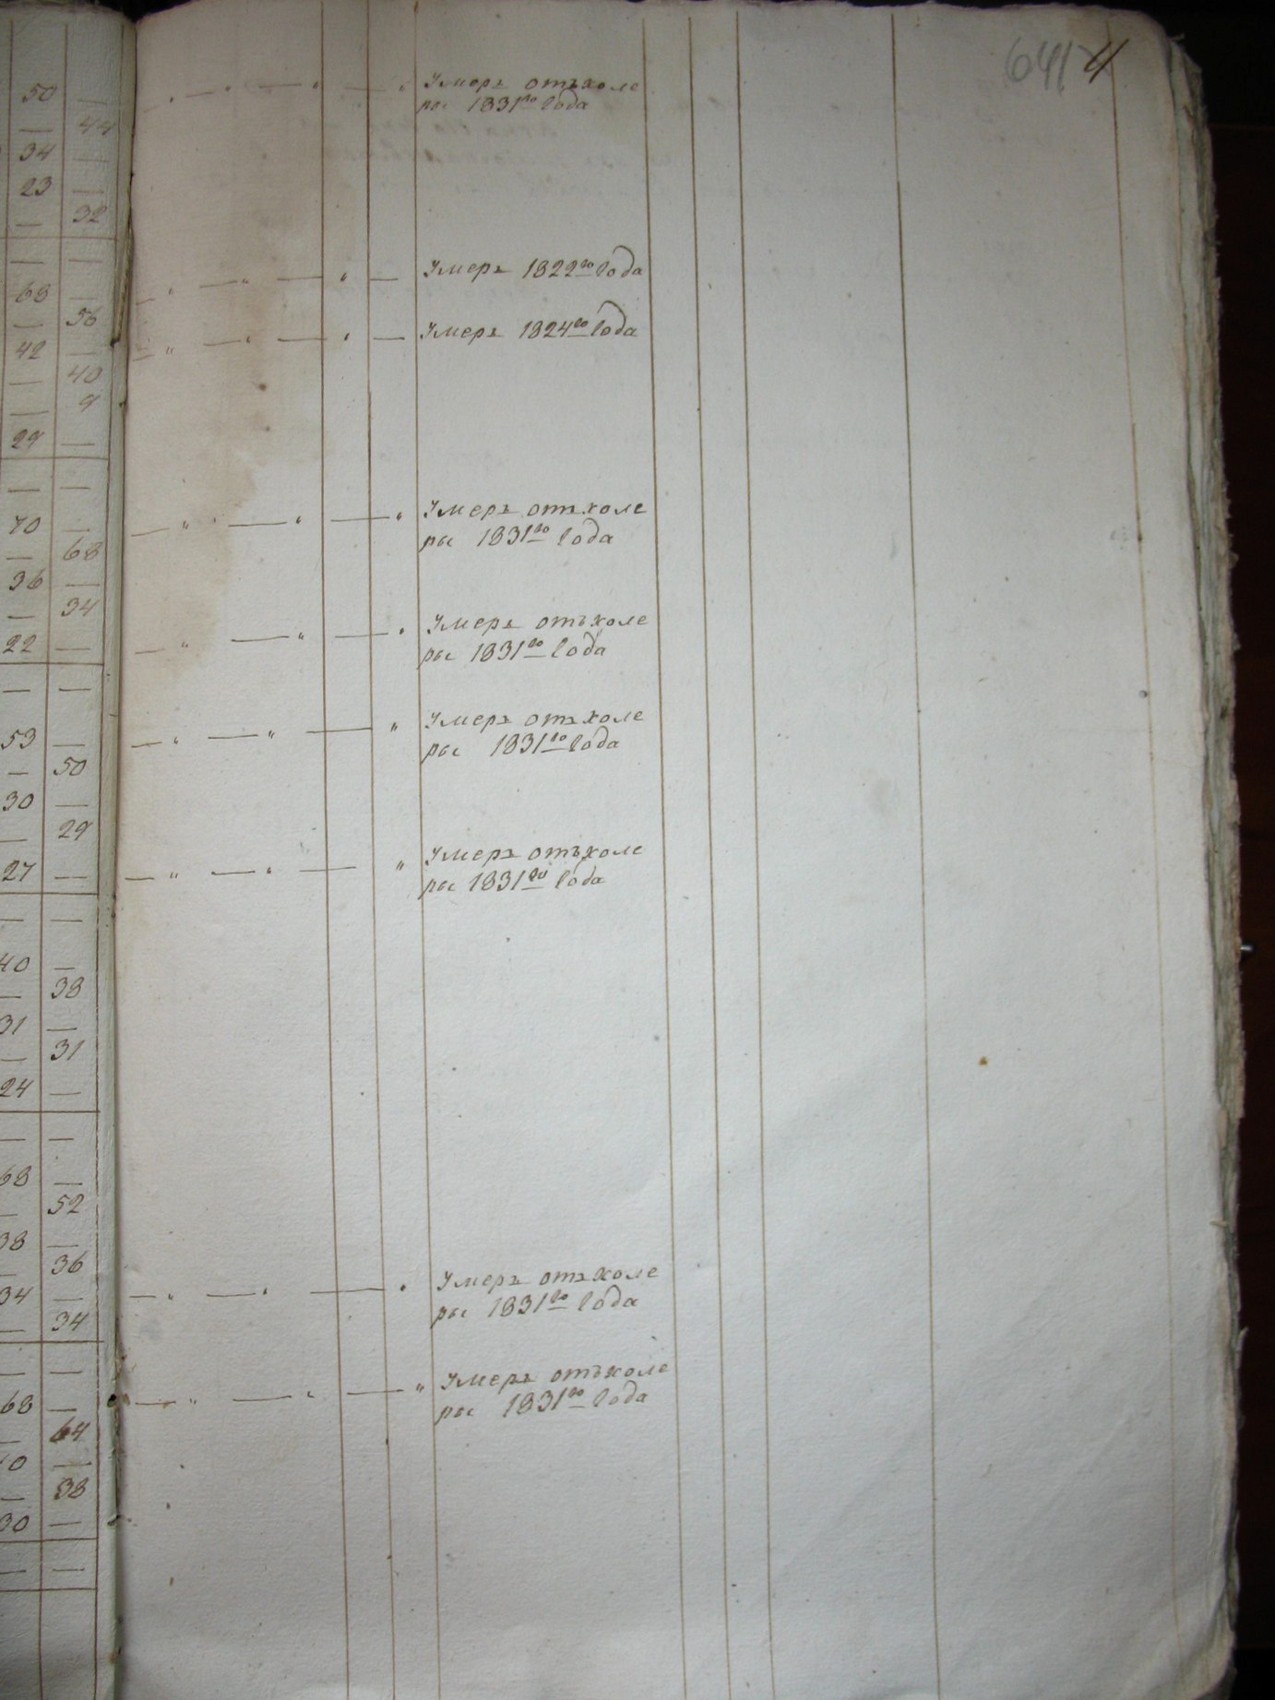 641 4
50 —
— 44
34 —
23 —
— 32
— —
68 —
— 56
42 —
— 40
— 9
29 —
— —
70 —
— 68
36 —
— 34
22 —
— —
53 —
— 50
30 —
— 29
27 —
— —
40 —
— 38
31 —
— 31
24 —
— —
68 —
— 52
38 —
— 36
34 —
— 34
— —
68 —
— 64
— 38
30 —
— —
Умеръ отъ холе
ры 1831го года
Умеръ 1822го года
Умеръ 1824го года
Умеръ отъ холе
ры 1831го года
Умеръ отъ холе
ры 1831го года
Умеръ отъ холе
ры 1831го года
Умеръ отъ холе
ры 1831го года
Умеръ отъ холе
ры 1831го года
Умеръ отъ холе
ры 1831го года